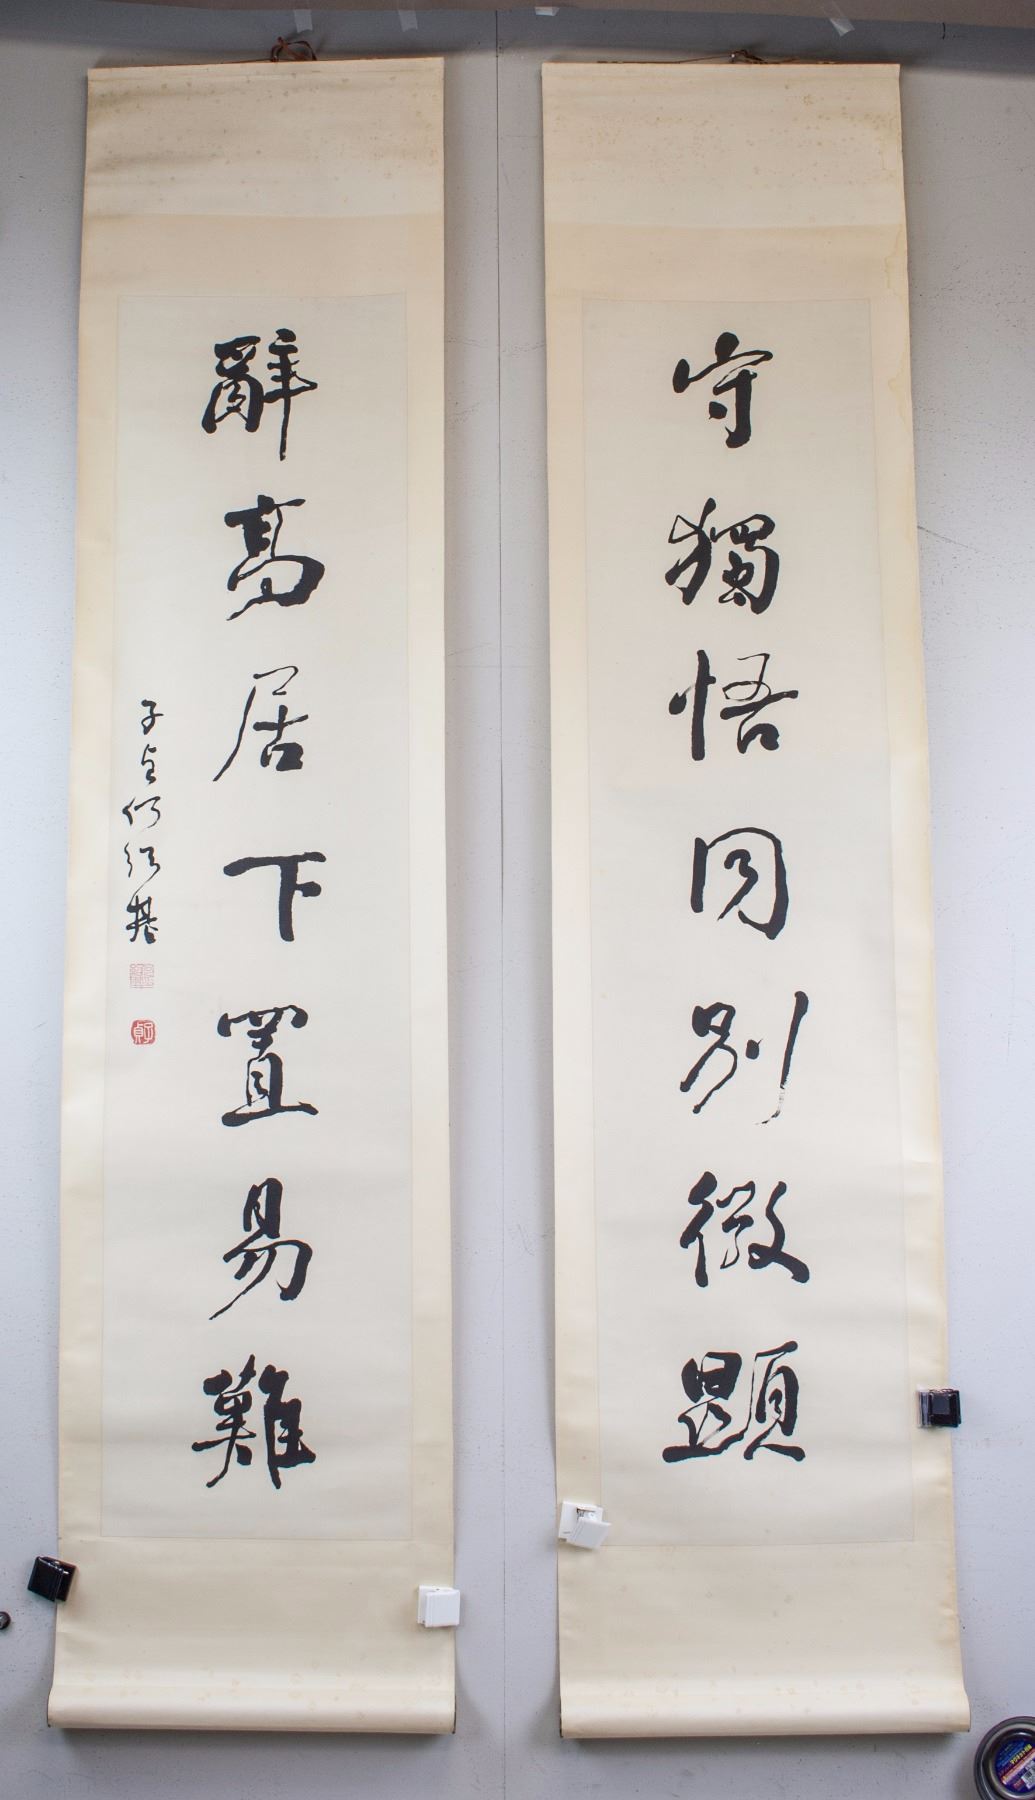 守獨悟同別微顯
辭高居下置易難
子貞何紹基
子貞